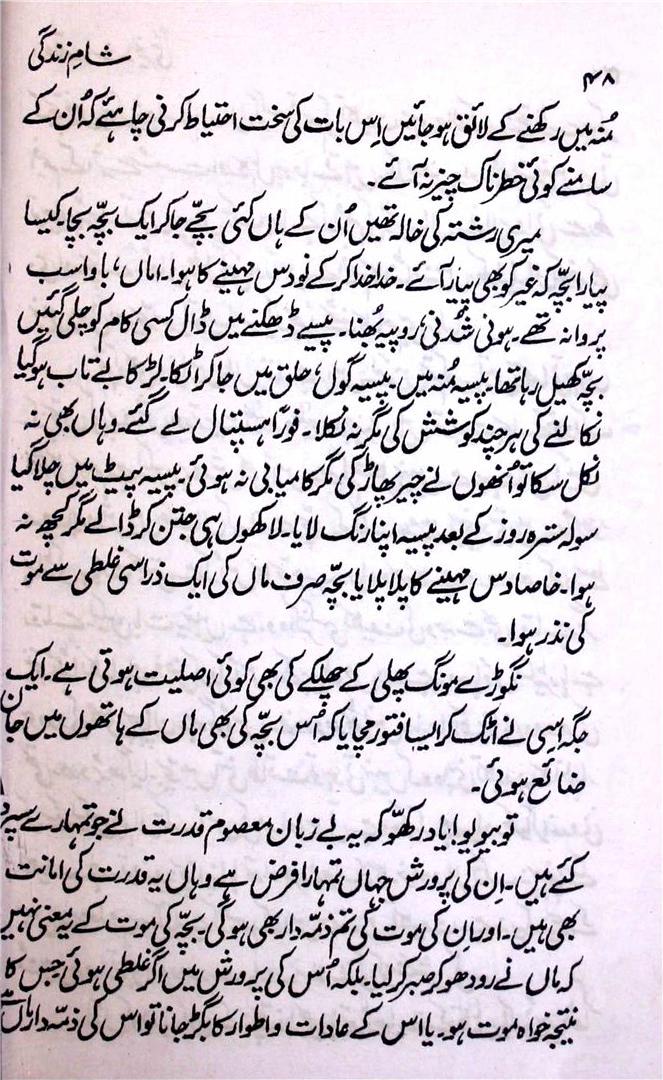 ۴۸
شامِ زندگی
مُنہ میں رکھنے کے لائق ہوجائیں اِس بات کی سخت احتیاط کرنی چاہئے کہ اُن کے
سامنے کوئی خطرناک چیز نہ آئے۔
میری رشتہ کی خالہ تھیں اُن کے ہاں کئی بچّے جاکر ایک بچّہ بچا۔ کیسا
پیارا بچّہ کہ غیر کو بھی پیار آئے۔ خدا خدا کرکے نو دس مہینے کا ہوا۔ اماں، باوا سب
پروانہ تھے۔ ہونی شدنی، روپیہ بُھنا۔ پیسے ڈھکنے میں ڈال کسی کام کو چلی گئیں
بچّہ کھیل رہا تھا، پیسہ مُنہ میں۔ پیسہ گول، حلق میں جاکر اٹکا۔ لڑکا بے تاب ہوگیا
نکالنے کی ہر چند کوشش کی مگر نہ نکلا۔ فوراً ہسپتال لے گئے۔ وہاں بھی نہ
نکل سکا تو اُنھوں نے چیر پھاڑ کی مگر کامیابی نہ ہوئی۔ پیسہ پیٹ میں چلا گیا
سولہ سترہ روز کے بعد پیسہ اپنا رنگ لایا۔ لاکھوں ہی جتن کر ڈالے مگر کچھ نہ
ہوا۔ خاصا دس مہینے کا پلا پلایا بچّہ صرف ماں کی ایک ذرا سی غلطی سے موت
کی نذر ہوا۔
نگوڑے مونگ پھلی کے چھلکے کی بھی کوئی اصلیت ہوتی ہے۔ ایک
جگہ اسی نے اٹک کر ایسا فتور مچایا کہ اُس بچّہ کی بھی ماں کے ہاتھوں میں جان
ضائع ہوئی۔
تو بیویو! یاد رکھّو کہ یہ بے زبان معصوم قدرت نے جو تمہارے سپرد
کئے ہیں۔ اِن کی پرورش جہاں تمہارا فرض ہے وہاں یہ قدرت کی امانت
بھی ہیں۔ اور اِن کی موت کی تم ذمّہ دار بھی ہوگی۔ بچّہ کی موت کے یہ معنی نہیں
کہ ماں نے رو دھو کر صبر کرلیا۔ بلکہ اُس کی پرورش میں اگر غلطی ہوئی جس کا
نتیجہ خواہ موت ہو۔ یا اس کے عادات و اطوار کا بگڑ جانا تو اس کی ذمّہ دار ماں ہے